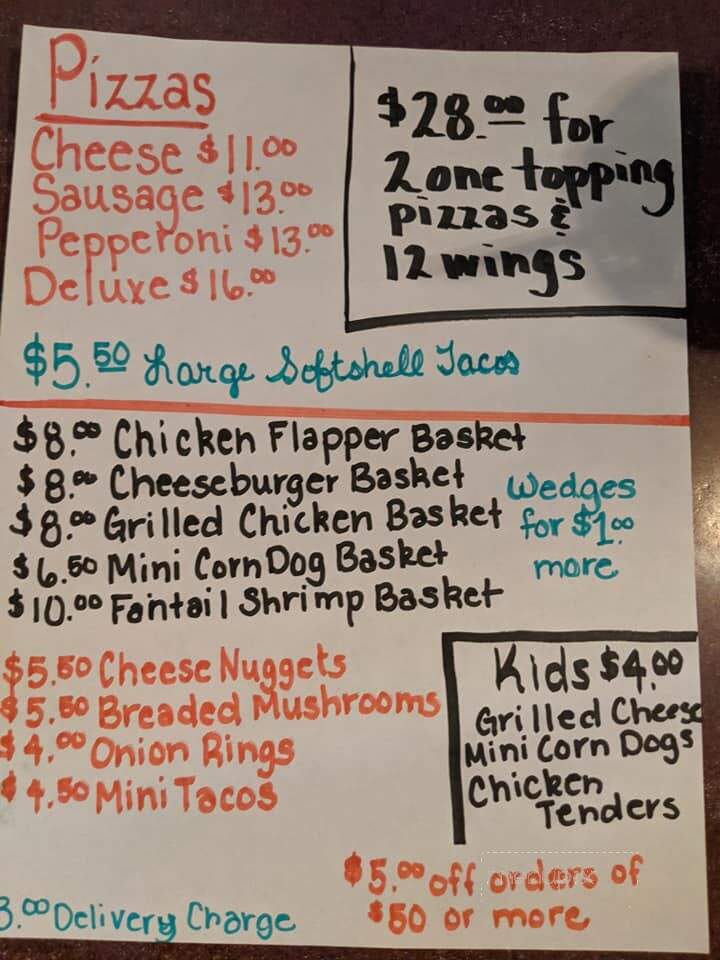 Pizzas
Cheese $11.00
Sausage $13.00
Pepperoni $13.00
Deluxe $16.00
$28.00 for
2 one topping
pizzas &
12 wings
$5.50 Large Softshell Tacos
$8.00 Chicken Flapper Basket
$8.00 Cheeseburger Basket
$8.00 Grilled Chicken Basket
$6.50 Mini Corn Dog Basket
$10.00 Fantail Shrimp Basket
Wedges
for $1.00
more
$5.50 Cheese Nuggets
$5.50 Breaded Mushrooms
$4.00 Onion Rings
$4.50 Mini Tacos
Kids $4.00
Grilled Cheese
Mini Corn Dogs
Chicken
Tenders
$5.00 off orders of
$50 or more
3.00 Delivery Charge